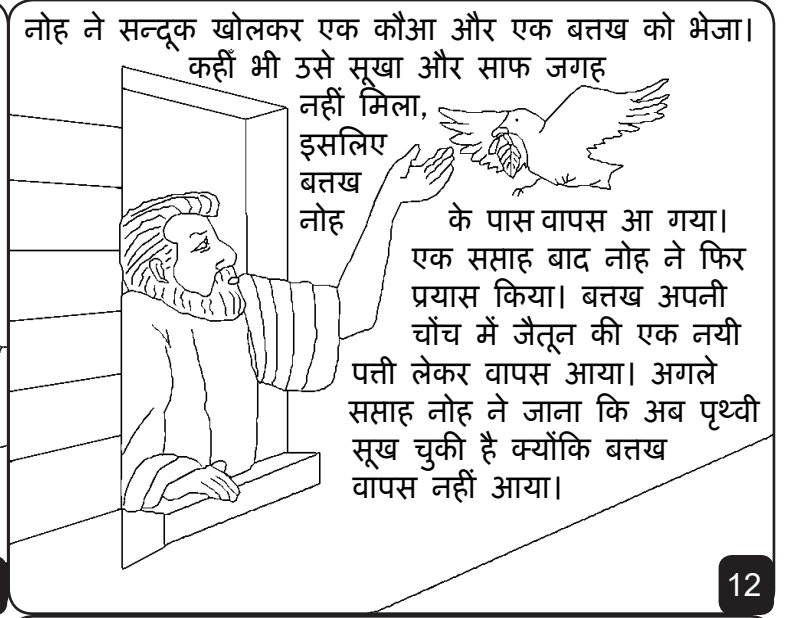 नोह ने सन्दूक खोलकर एक कौआ और एक बत्तख को भेजा।
कहीं भी उसे सूखा और साफ जगह
नहीं मिला,
इसलिए
बत्तख
नोह के पास वापस आ गया।
एक सप्ताह बाद नोह ने फिर
प्रयास किया। बत्तख अपनी
चोंच में जैतून की एक नयी
पत्ती लेकर वापस आया। अगले
सप्ताह नोह ने जाना कि अब पृथ्वी
सूख चुकी है क्योंकि बत्तख
वापस नहीं आया।
12